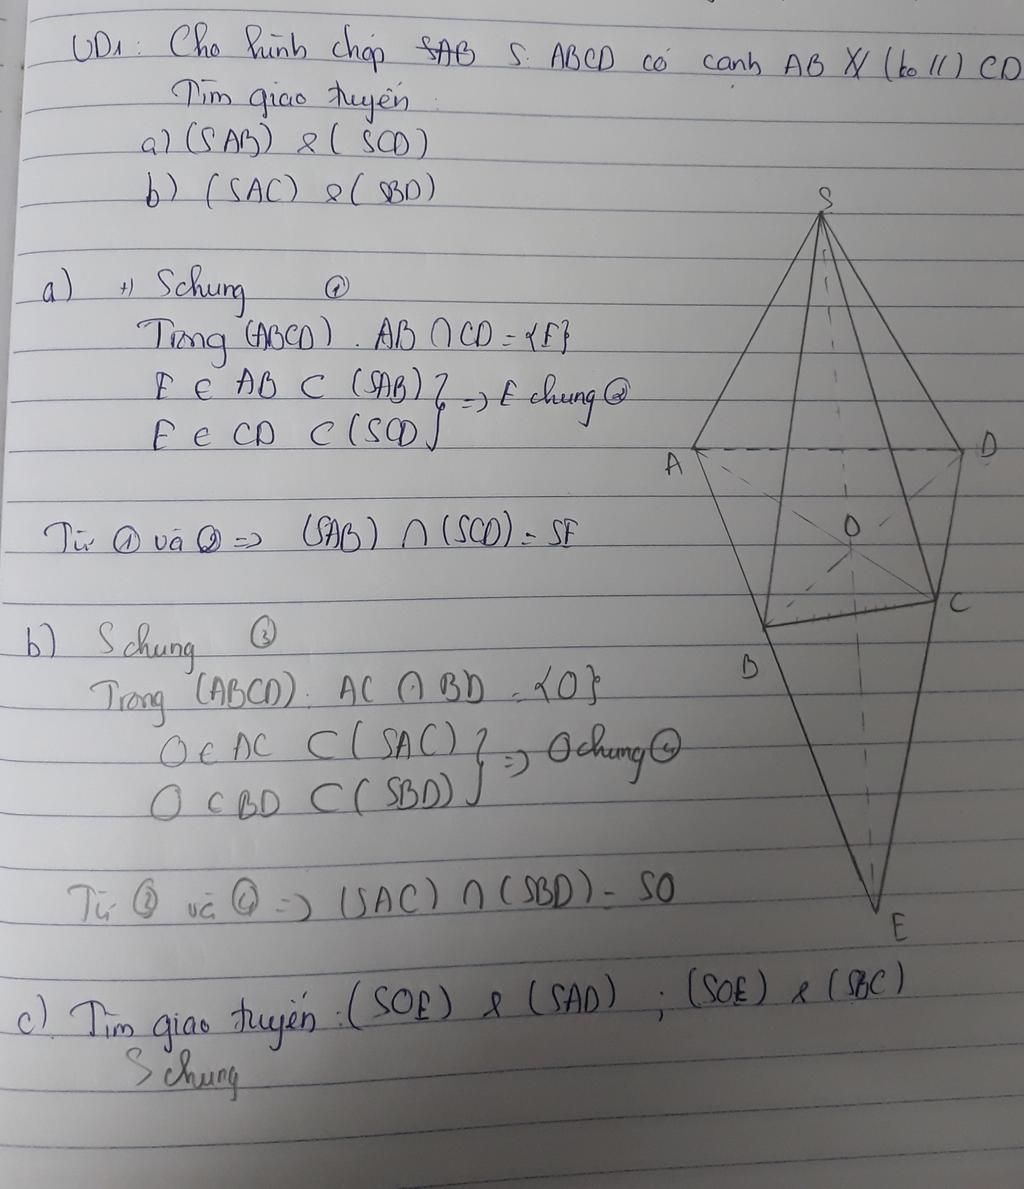 UD1: Cho hình chóp S. ABCD có cạnh AB ∦ (ko //) CD
Tìm giao tuyến:
a) (SAB) & (SCD)
b) (SAC) & (SBD)
a) +) S chung ①
Trong (ABCD). AB ∩ CD = {E}
E ∈ AB ⊂ (SAB)
E ∈ CD ⊂ (SCD) } => E chung ②
Từ ① và ② => (SAB) ∩ (SCD) = SE
b) S chung ③
Trong (ABCD). AC ∩ BD = {O}
O ∈ AC ⊂ (SAC)
O ∈ BD ⊂ (SBD) } => O chung ④
Từ ③ và ④ => (SAC) ∩ (SBD) = SO
c) Tìm giao tuyến: (SOE) & (SAD) ; (SOE) & (SBC)
S chung
S
A
D
O
C
B
E